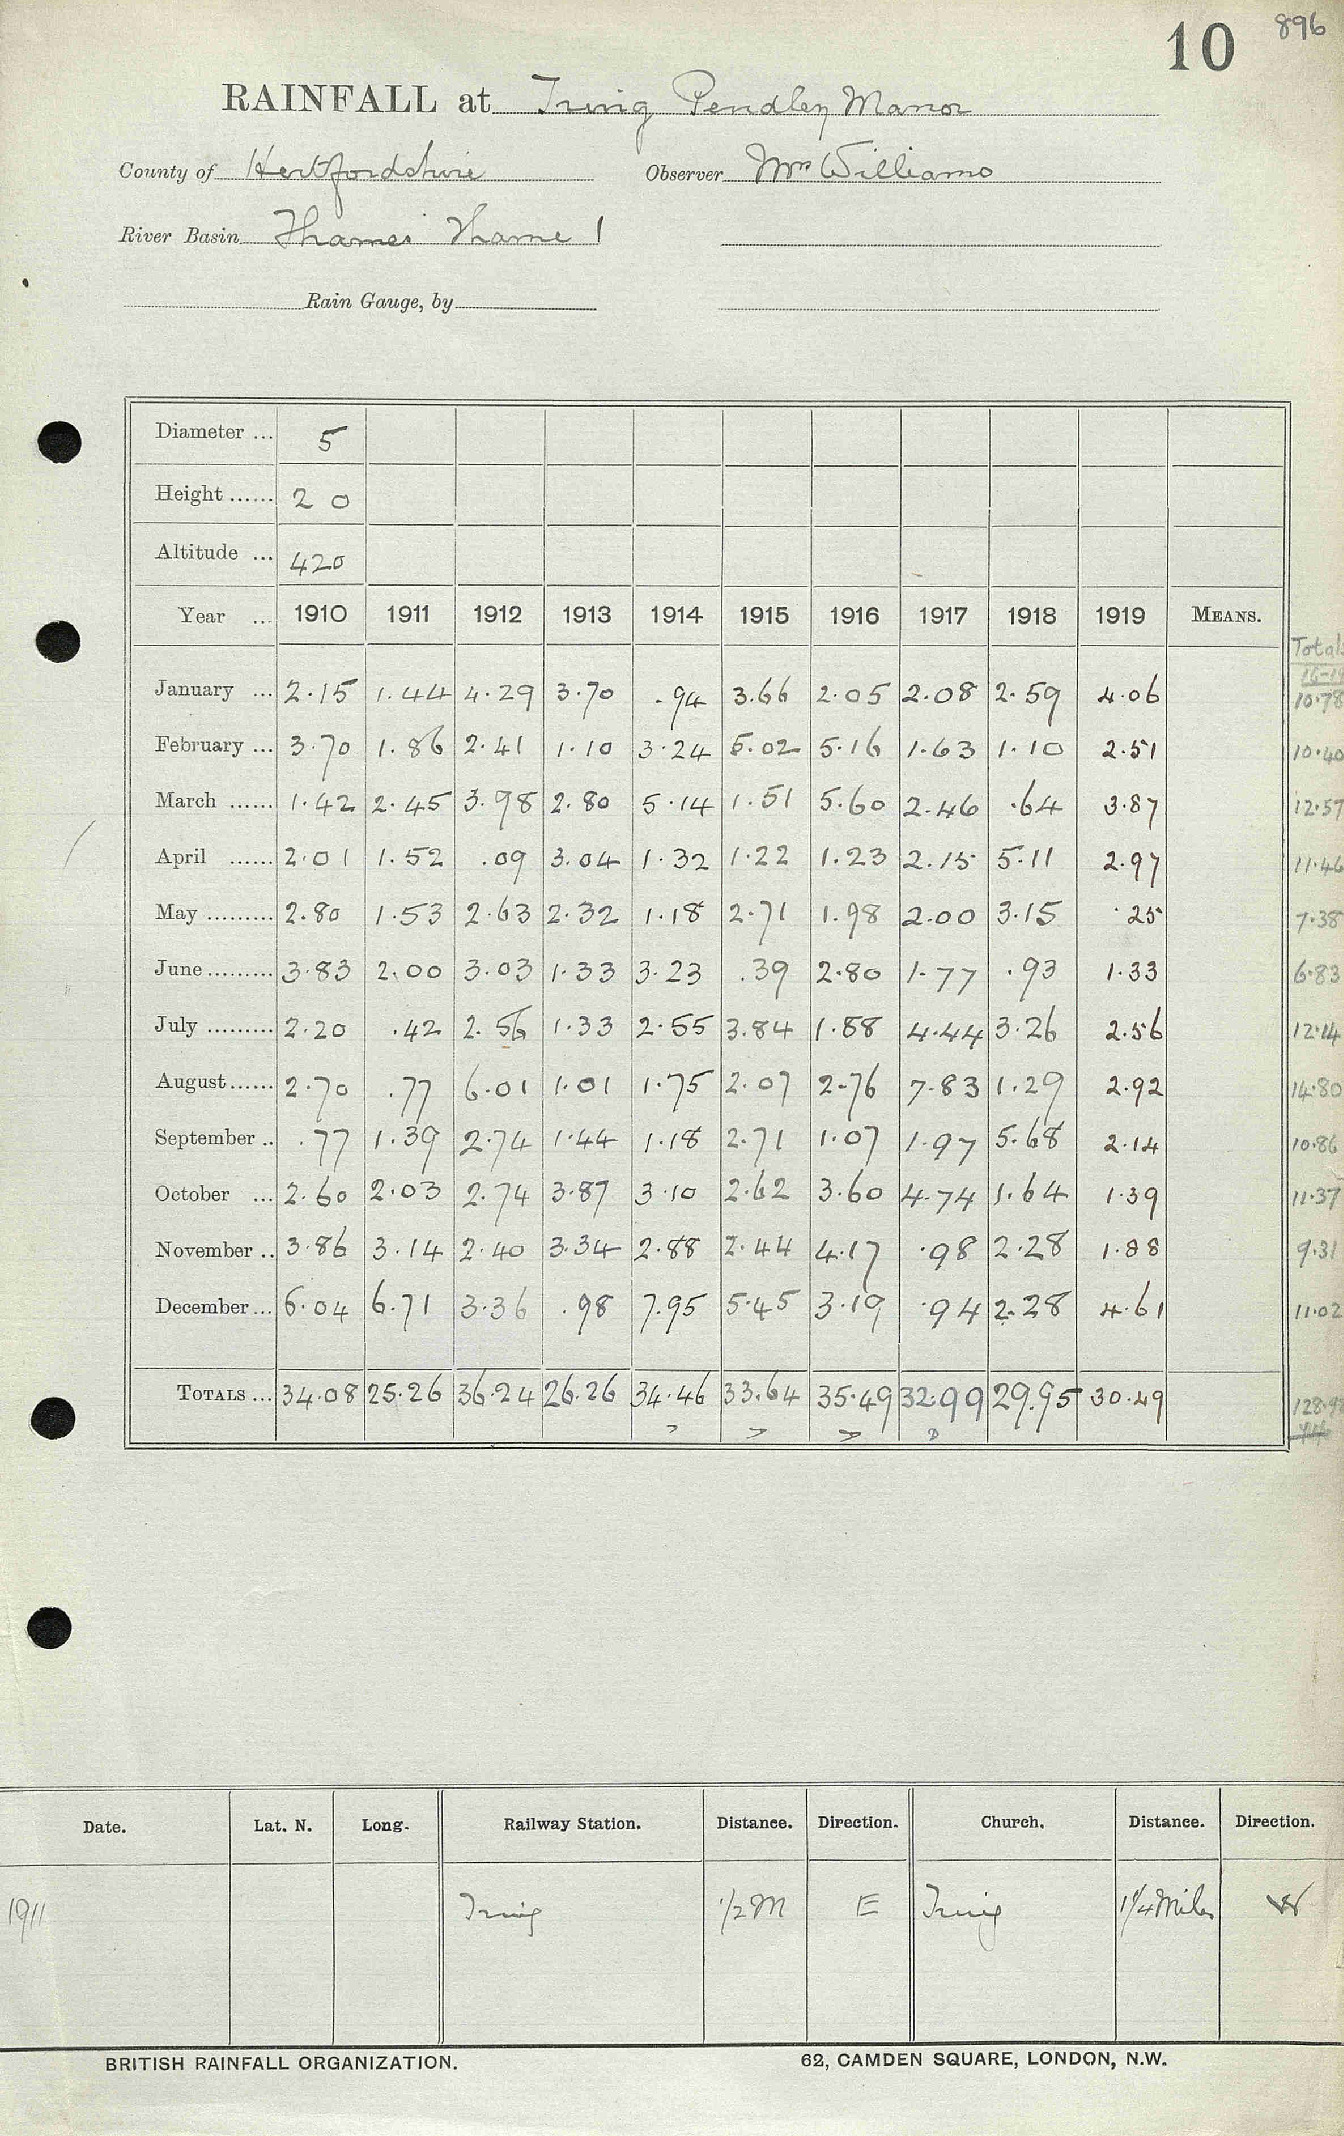 10 896
RAINFALL at Tring Pendley Manor
County of Hertfordshire Observer Mrs Williams
River Basin Thames Thame 1
Rain Gauge, by
Diameter ... 5
Height ...... 2 0
Altitude ... 420
Year ... 1910 1911 1912 1913 1914 1915 1916 1917 1918 1919 MEANS.
Totals
16-19
January ... 2.15 1.44 4.29 3.70 .94 3.66 2.05 2.08 2.59 4.06 10.78
February ... 3.70 1.86 2.41 1.10 3.24 5.02 5.16 1.63 1.10 2.51 10.40
March ...... 1.42 2.45 3.98 2.80 5.14 1.51 5.60 2.46 .64 3.87 12.57
April ...... 2.01 1.52 .09 3.04 1.32 1.22 1.23 2.15 5.11 2.97 11.46
May ......... 2.80 1.53 2.63 2.32 1.18 2.71 1.98 2.00 3.15 .25 7.38
June ......... 3.83 2.00 3.03 1.33 3.23 .39 2.80 1.77 .93 1.33 6.83
July ......... 2.20 .42 2.56 1.33 2.55 3.84 1.88 4.44 3.26 2.56 12.14
August ...... 2.70 .77 6.01 1.01 1.75 2.07 2.76 7.83 1.29 2.92 14.80
September .. .77 1.39 2.74 1.44 1.18 2.71 1.07 1.97 5.68 2.14 10.86
October ... 2.60 2.03 2.74 3.87 3.10 2.62 3.60 4.74 1.64 1.39 11.37
November .. 3.86 3.14 2.40 3.34 2.88 2.44 4.17 .98 2.28 1.88 9.31
December ... 6.04 6.71 3.36 .98 7.95 5.45 3.19 .94 2.28 4.61 11.02
TOTALS ... 34.08 25.26 36.24 26.26 34.46 33.64 35.49 32.99 29.95 30.49
Date. Lat. N. Long. Railway Station. Distance. Direction. Church. Distance. Direction.
1911 Tring 1/2 M E Tring 1 1/4 Miles W
BRITISH RAINFALL ORGANIZATION. 62, CAMDEN SQUARE, LONDON, N.W.